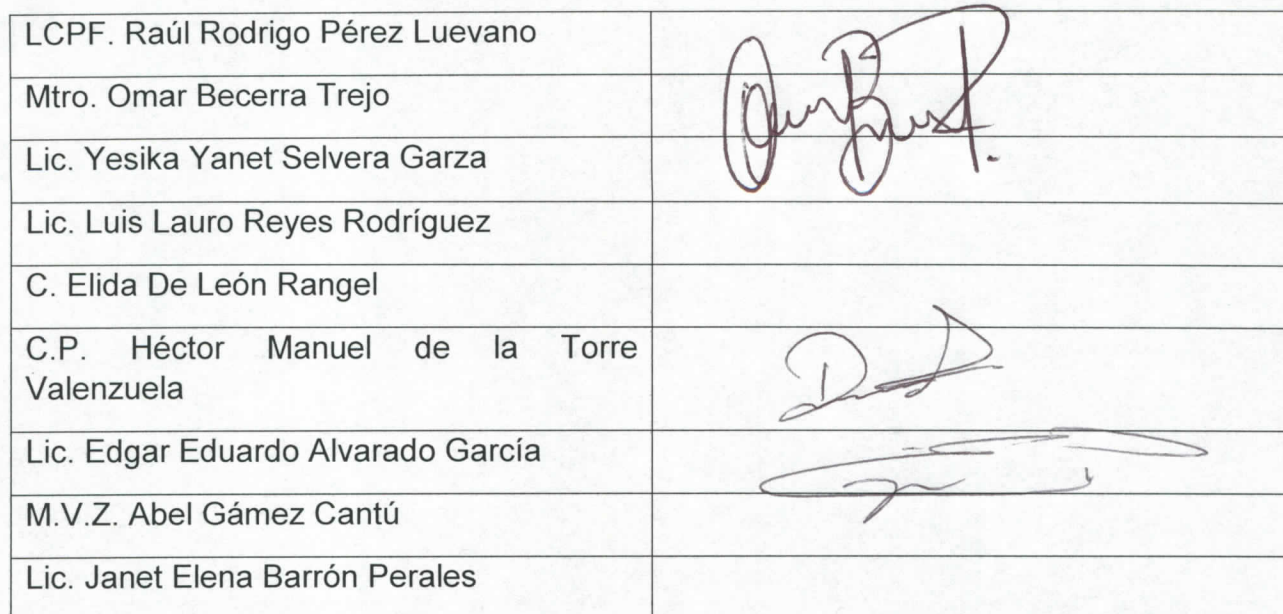 LCPF. Raúl Rodrigo Pérez Luevano
Mtro. Omar Becerra Trejo
Lic. Yesika Yanet Selvera Garza
Lic. Luis Lauro Reyes Rodríguez
C. Elida De León Rangel
C.P. Héctor Manuel de la Torre
Valenzuela
Lic. Edgar Eduardo Alvarado García
M.V.Z. Abel Gámez Cantú
Lic. Janet Elena Barrón Perales